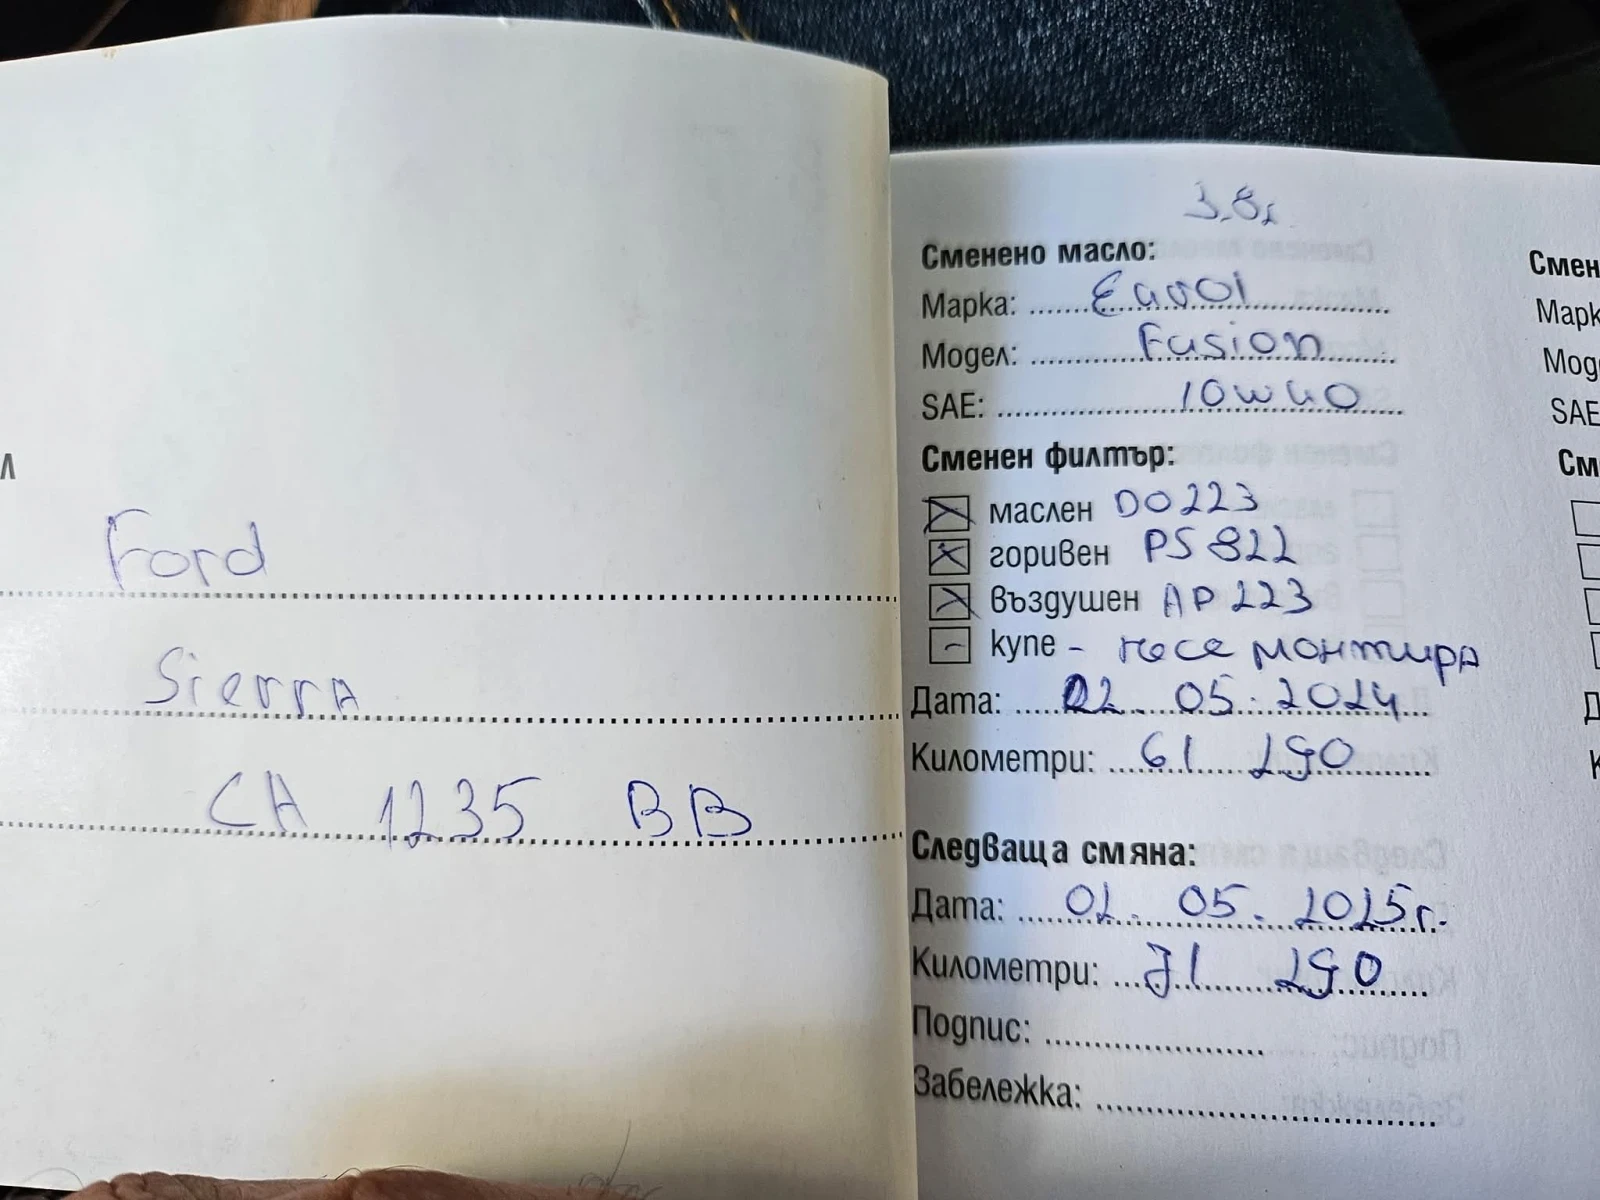 л
Ford
Sierra
CA 1235 BB
3.8л
Сменено масло:
Марка: Eavol
Модел: Fusion
SAE: 10w40
Сменен филтър:
маслен DO223
горивен PS 822
въздушен AP 223
купе - несе монтира
Дата: 02. 05. 2024
Километри: 61 290
Следваща смяна:
Дата: 02. 05. 2025г.
Километри: 71 290
Подпис:
Забележка:
Смен
Марк
Мод
SAE
См
Д
К